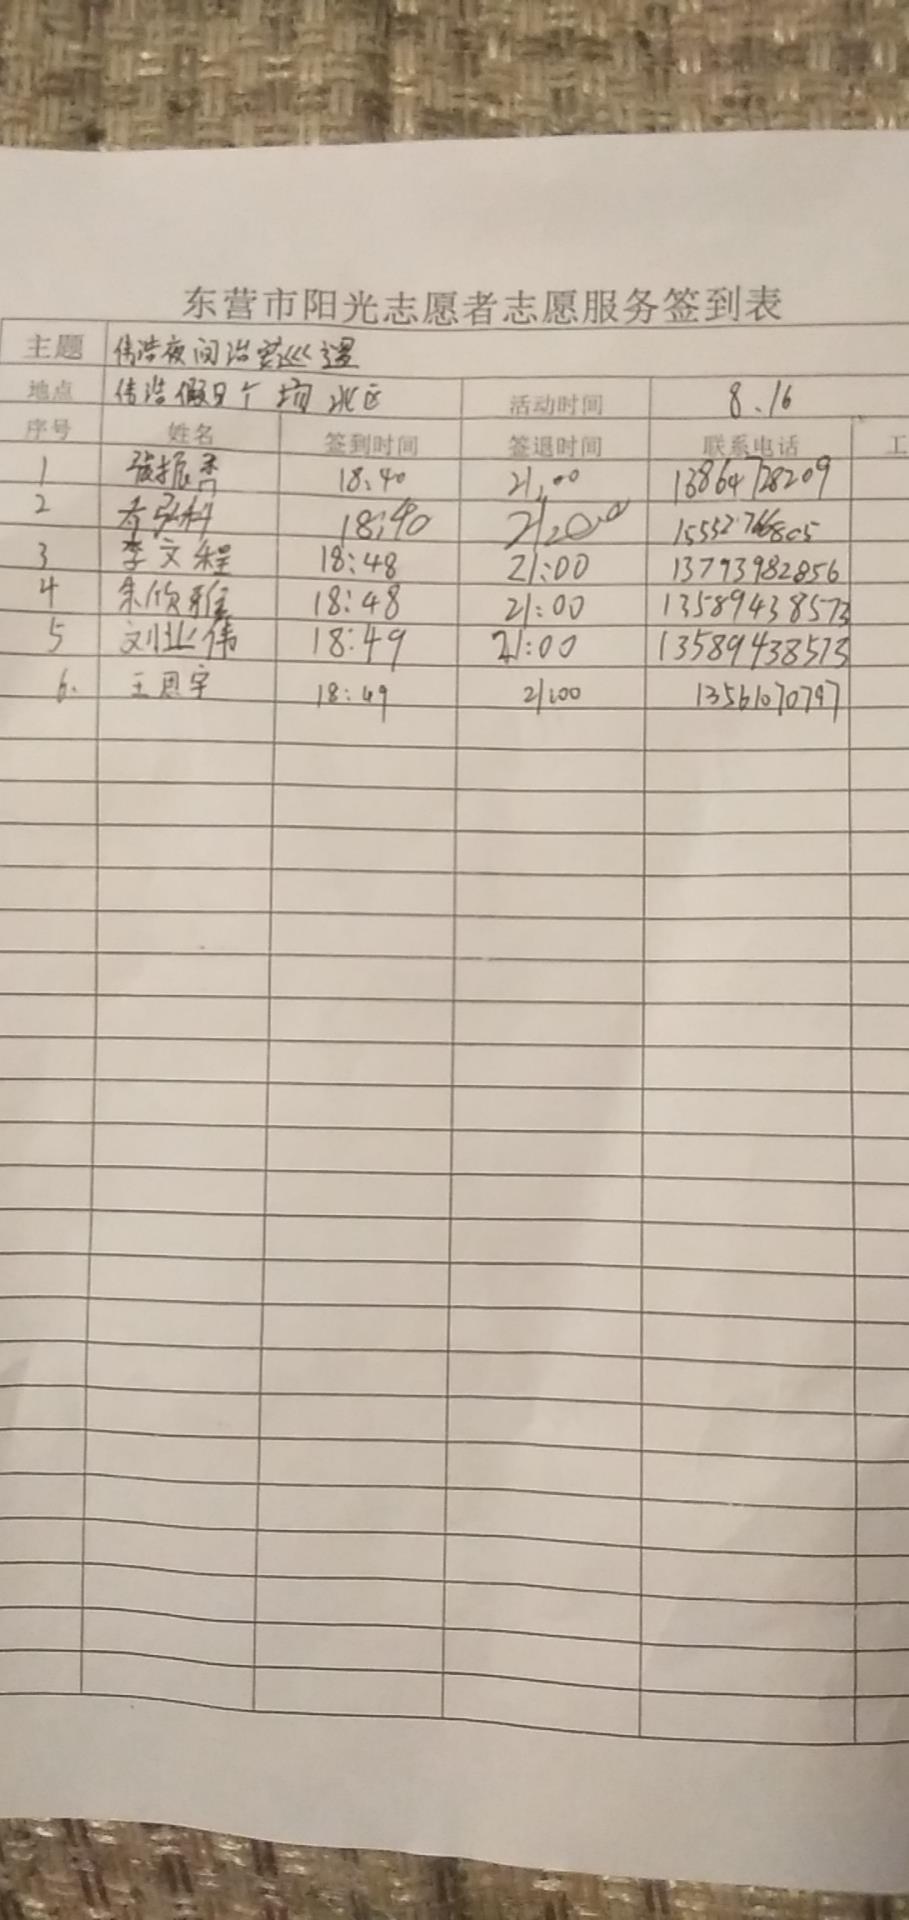 东营市阳光志愿者志愿服务签到表
主题 伟浩夜间治安巡逻
地点 伟浩假日广场北区 活动时间 8.16
序号 姓名 签到时间 签退时间 联系电话 工
1 张振香 18:40 21:00 13864728209
2 18:40 21:00 15552766805
3 李文程 18:48 21:00 13793982856
4 朱欣雅 18:48 21:00 13589438573
5 刘业伟 18:49 21:00 13589438573
6. 王恩宇 18:49 21:00 13561070797